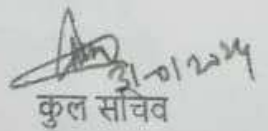 31-01-2024
कुल सचिव